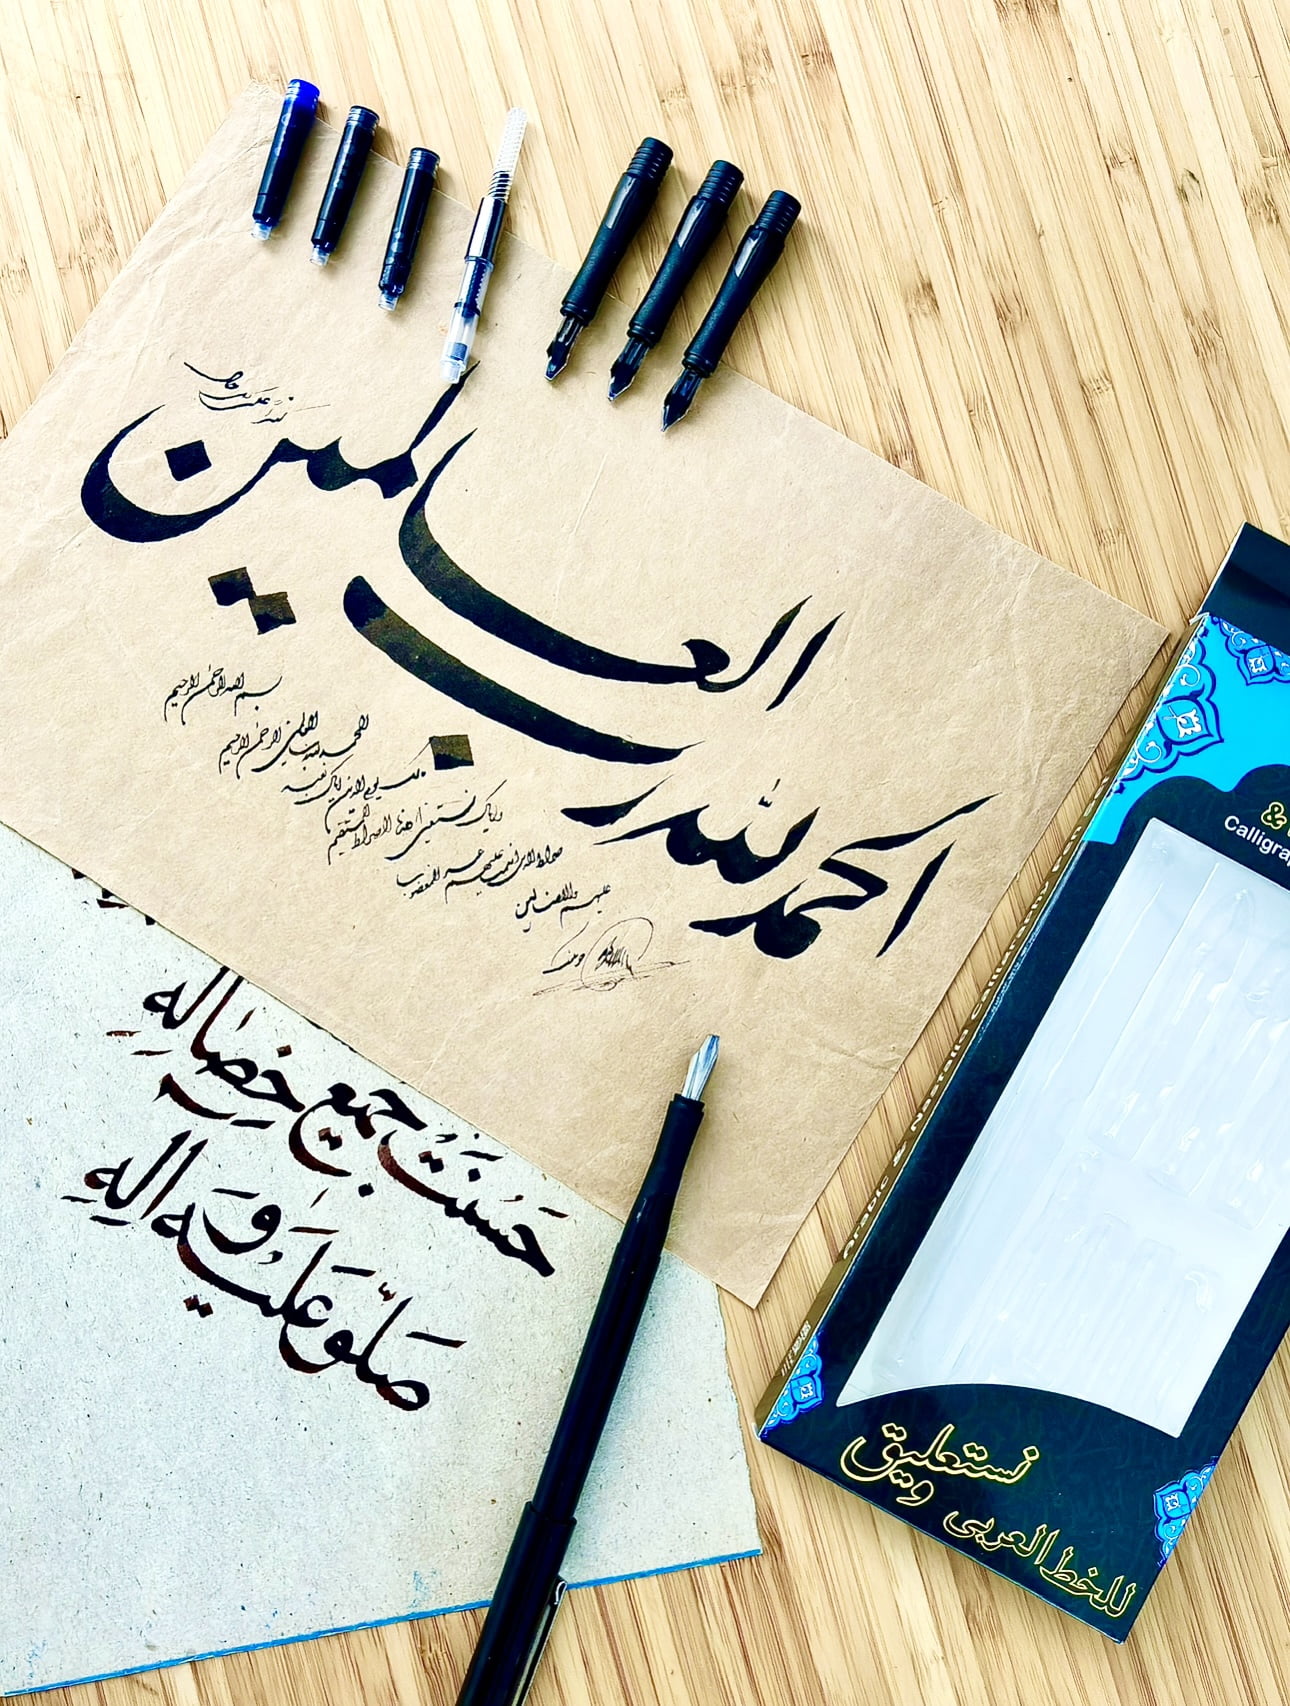 الحمد لله رب
العالمين
بسم الله الرحمن الرحيم
الحمد لله رب العالمين الرحمن الرحيم
مالك يوم الدين اياك نعبد
واياك نستعين اهدنا الصراط المستقيم
صراط الذين انعمت عليهم غير المغضوب
عليهم والضالين
حَسُنَتْ جميع خِصَالِهِ
صَلُّو عَلَيْهِ وَآلِهِ
& 
Calligra
Arabic & Nastaliq Calligraphy Pen
نستعليق
للخط العربي و